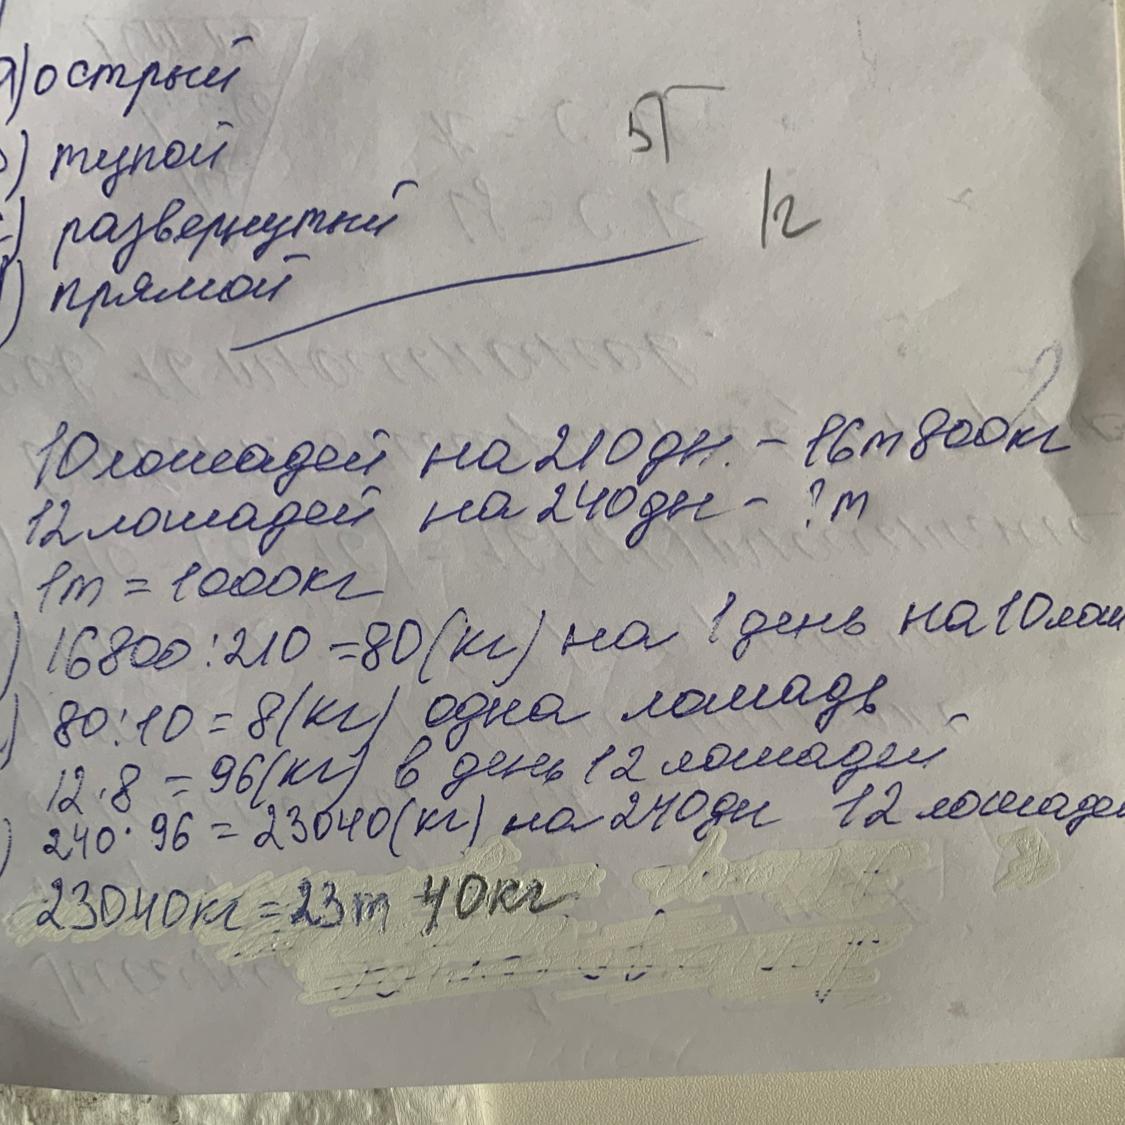 а) острый
б) тупой
с) развернутый
д) прямой
5Т
12
10 лошадей на 210 дн. - 16т 800кг
12 лошадей на 240дн - ? т
1т = 1000кг
) 16800:210 =80(кг) на 1 день на 10 лош
) 80:10 = 8(кг) одна лошадь
12·8 = 96(кг) в день 12 лошадей
) 240·96 = 23040(кг) на 240дн 12 лошадей
23040кг = 23т 40кг